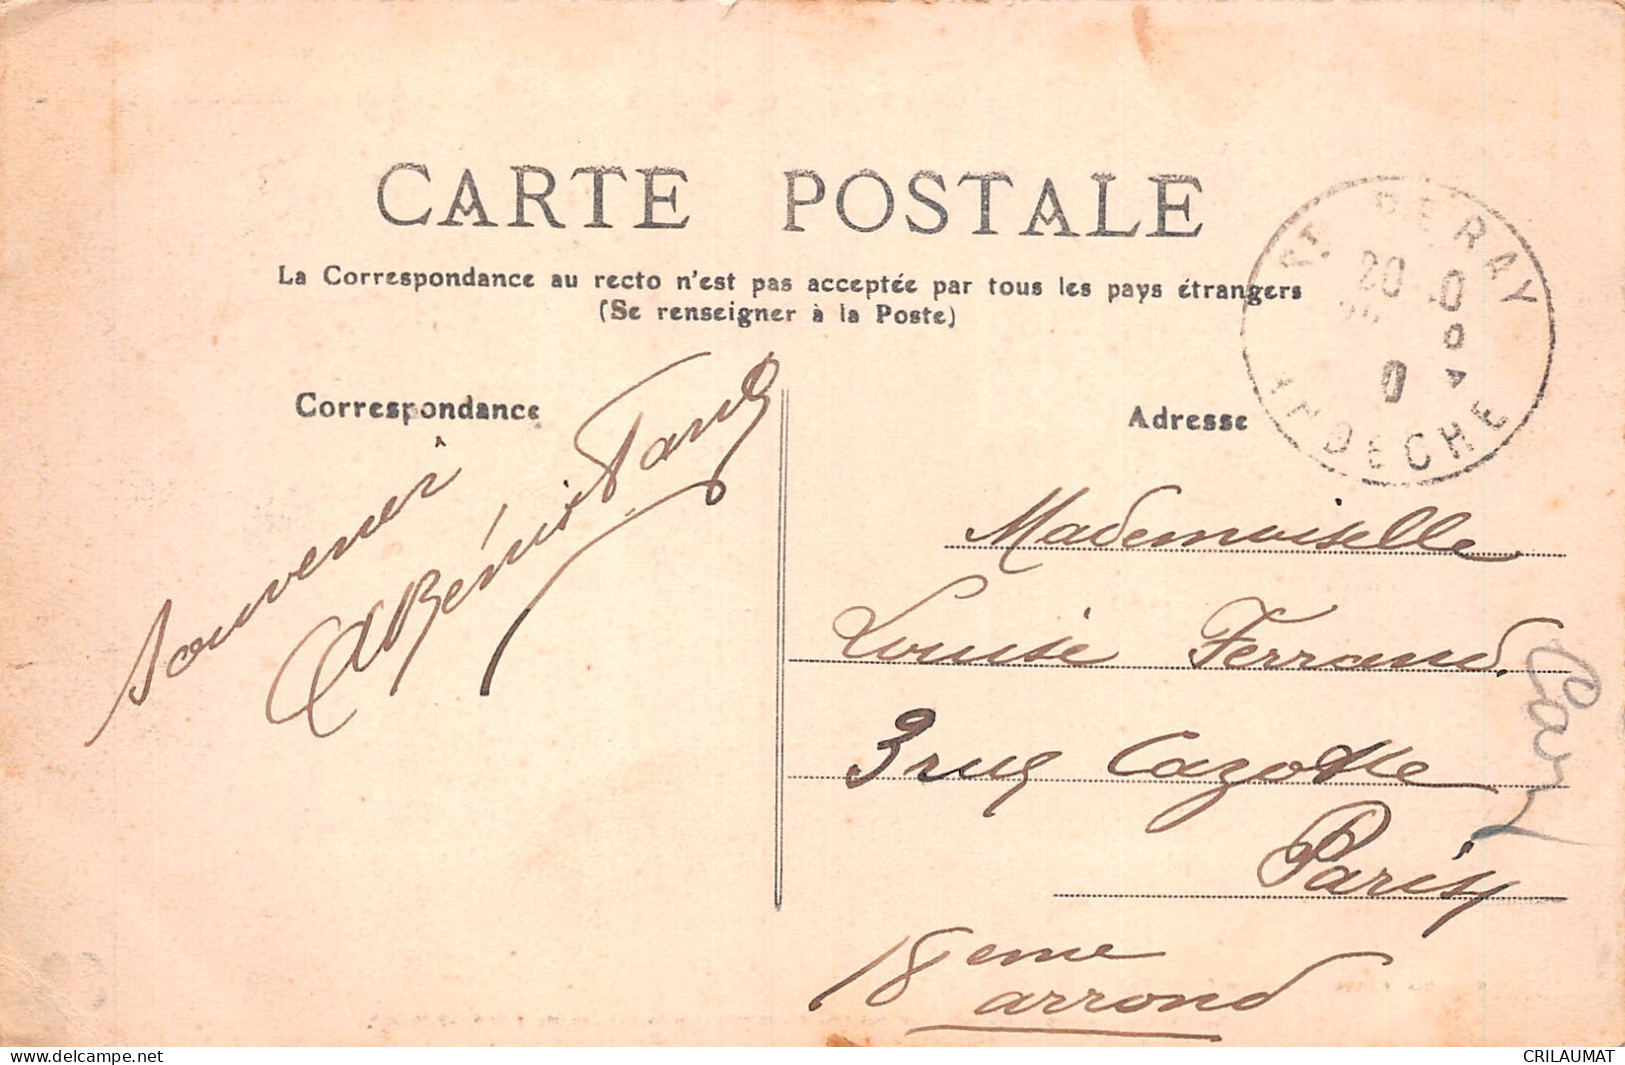 CARTE POSTALE
La Correspondance au recto n'est pas acceptée par tous les pays étrangers
(Se renseigner à la Poste)
Correspondance
Adresse
St. PERAY
20
ARDECHE
Souvenir
Mademoiselle
Louise Ferrand
3 rue Cazotte
Paris
18eme
arrond
delcampe.net
CRILAUMAT